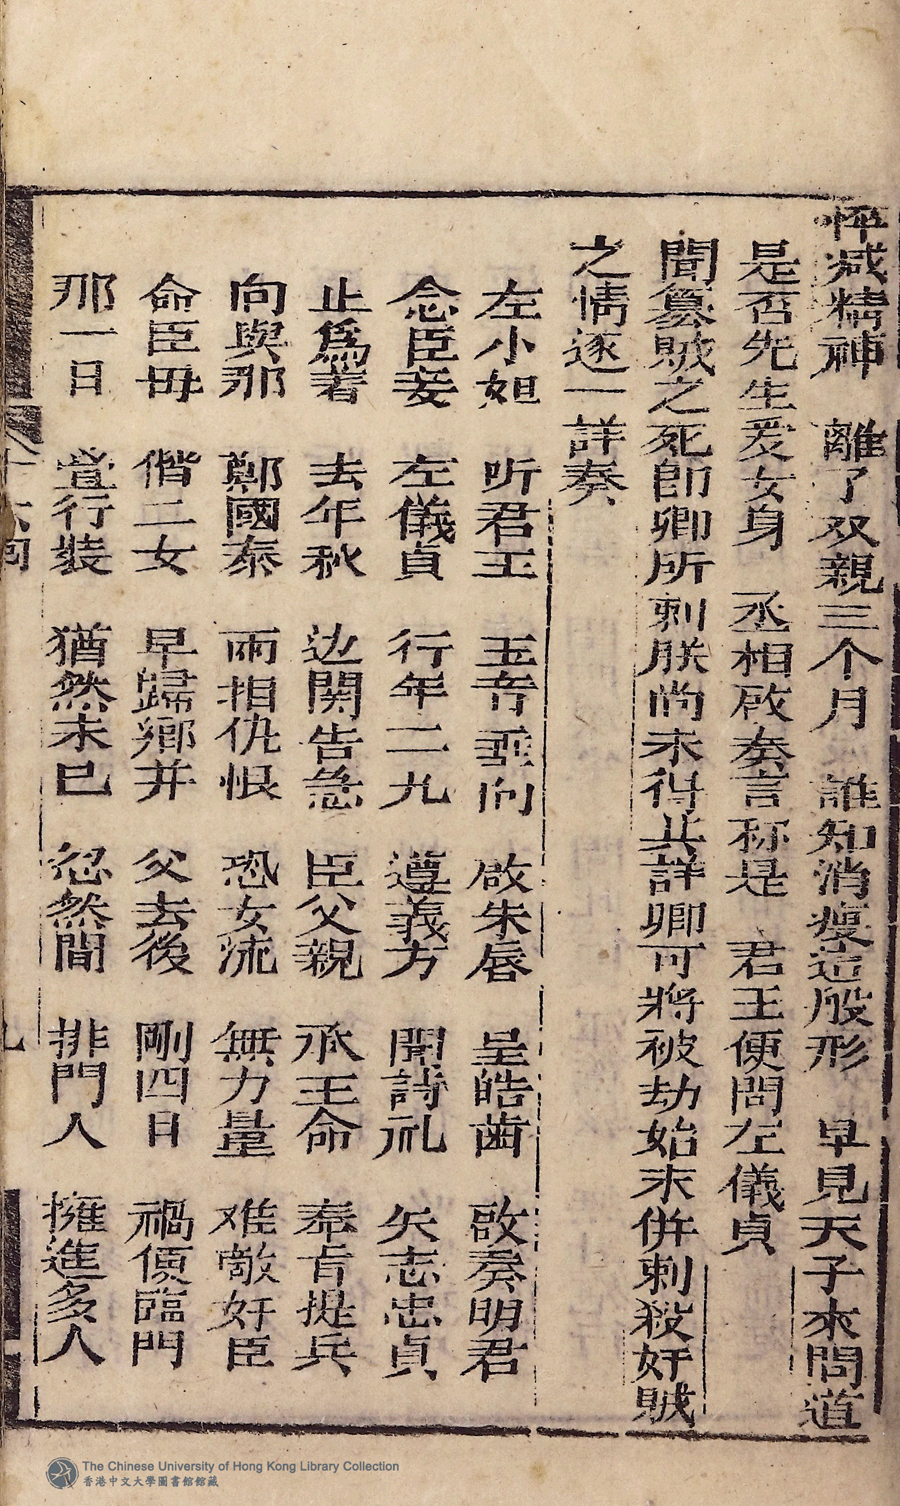 怦减精神　離了双親三个月　誰知消瘦這般形　早見天子來問道
是否先生爱女身　丞相啟奏言称是　君王便問左儀貞
聞篡賊之死即卿所刺朕尚未得其詳卿可將被劫始末併刺殺奸賊
之情逐一詳奏
左小姐　听君王　玉音垂向　啟朱唇　呈皓齒　啟奏明君
念臣妾　左儀貞　行年二九　遵義方　閑詩礼　矢志忠貞
止爲着　去年秋　边関告急　臣父親　承王命　奉旨提兵
向與那　鄭國泰　兩相仇恨　恐女流　無力量　难敵奸臣
命臣毋　偕二女　早歸鄉井　父去後　剛四日　禍便臨門
那一日　登行裝　猶然未已　忽然間　排門人　擁進多人
十六囘
九
The Chinese University of Hong Kong Library Collection
香港中文大學圖書館館藏